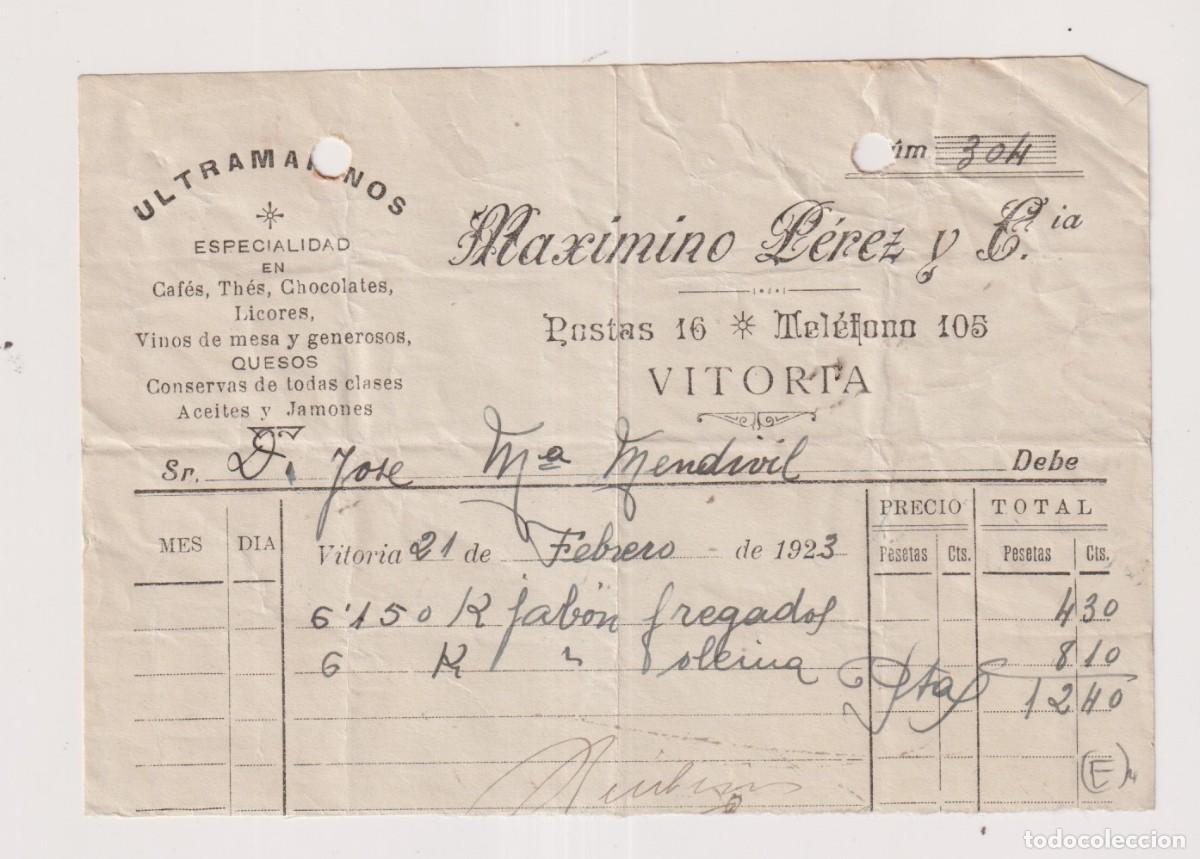 ULTRAMARINOS
ESPECIALIDAD
EN
Cafés, Thés, Chocolates,
Licores,
Vinos de mesa y generosos,
QUESOS
Conservas de todas clases
Aceites y Jamones
úm 304
Maximino Pérez y C.ia
Postas 16 Teléfono 105
VITORIA
Sr. D. Jose Mª Mendivil Debe
MES DIA Vitoria 21 de Febrero de 1923 PRECIO TOTAL
Pesetas Cts. Pesetas Cts.
6'150 K jabón fregados 4 30
6 K " oleina 8 10
Ptas 12 40
(E)
todocoleccion